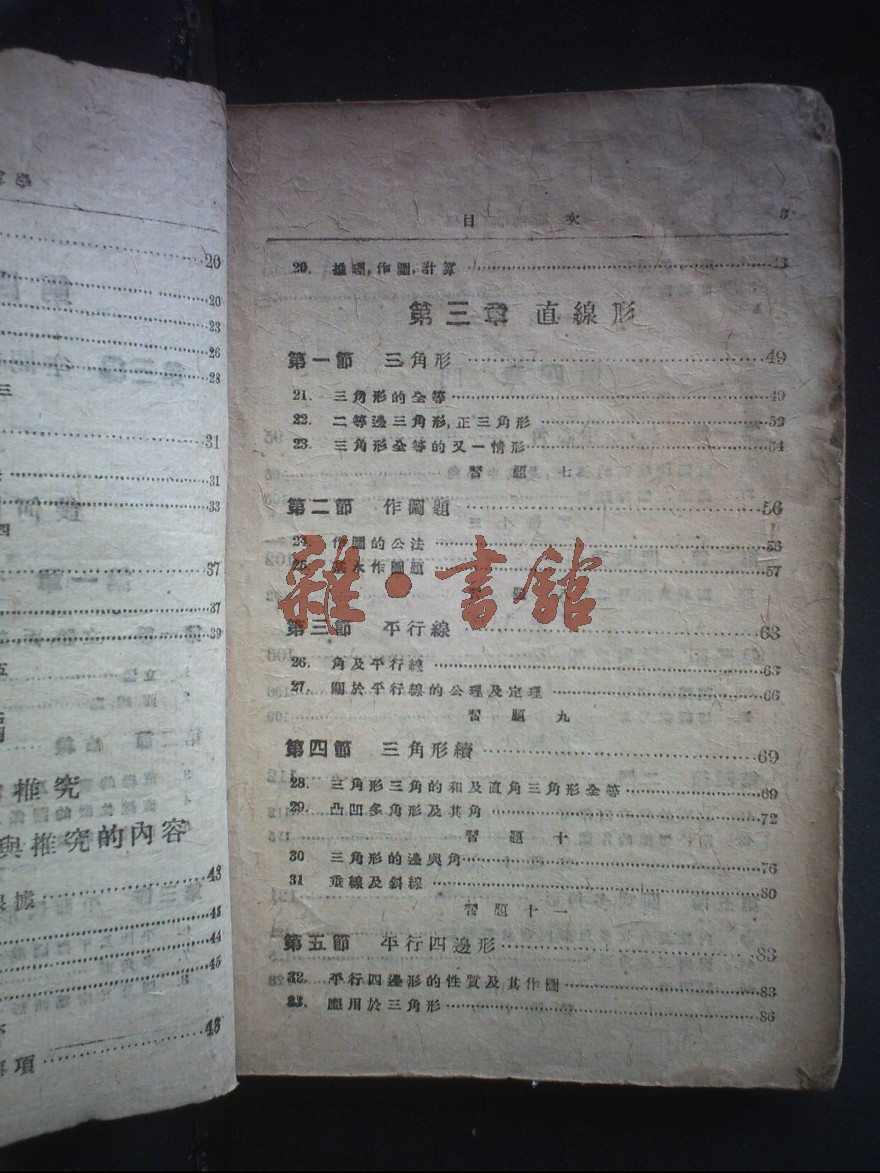 20
20
23
26
28
三
31
31
33
四
37
37
39
五
推究
與推究的內容
據 43
43
44
45
項 48
目 次
20. 推理,作圖,計算
第三章 直線形
第一節 三角形 49
21. 三角形的全等 49
22. 二等邊三角形,正三角形 52
23. 三角形全等的又一情形 54
習題七
第二節 作圖題 56
24. 作圖的公法 56
25. 基本作圖題 57
雜·書館
第三節 平行線 63
26. 角及平行線 63
27. 關於平行線的公理及定理 66
習題九
第四節 三角形續 69
28. 三角形三角的和及直角三角形全等 69
29. 凸凹多角形及其角 72
習題十
30. 三角形的邊與角 76
31 垂線及斜線 80
習題十一
第五節 平行四邊形 83
32. 平行四邊形的性質及其作圖 83
33. 應用於三角形 86